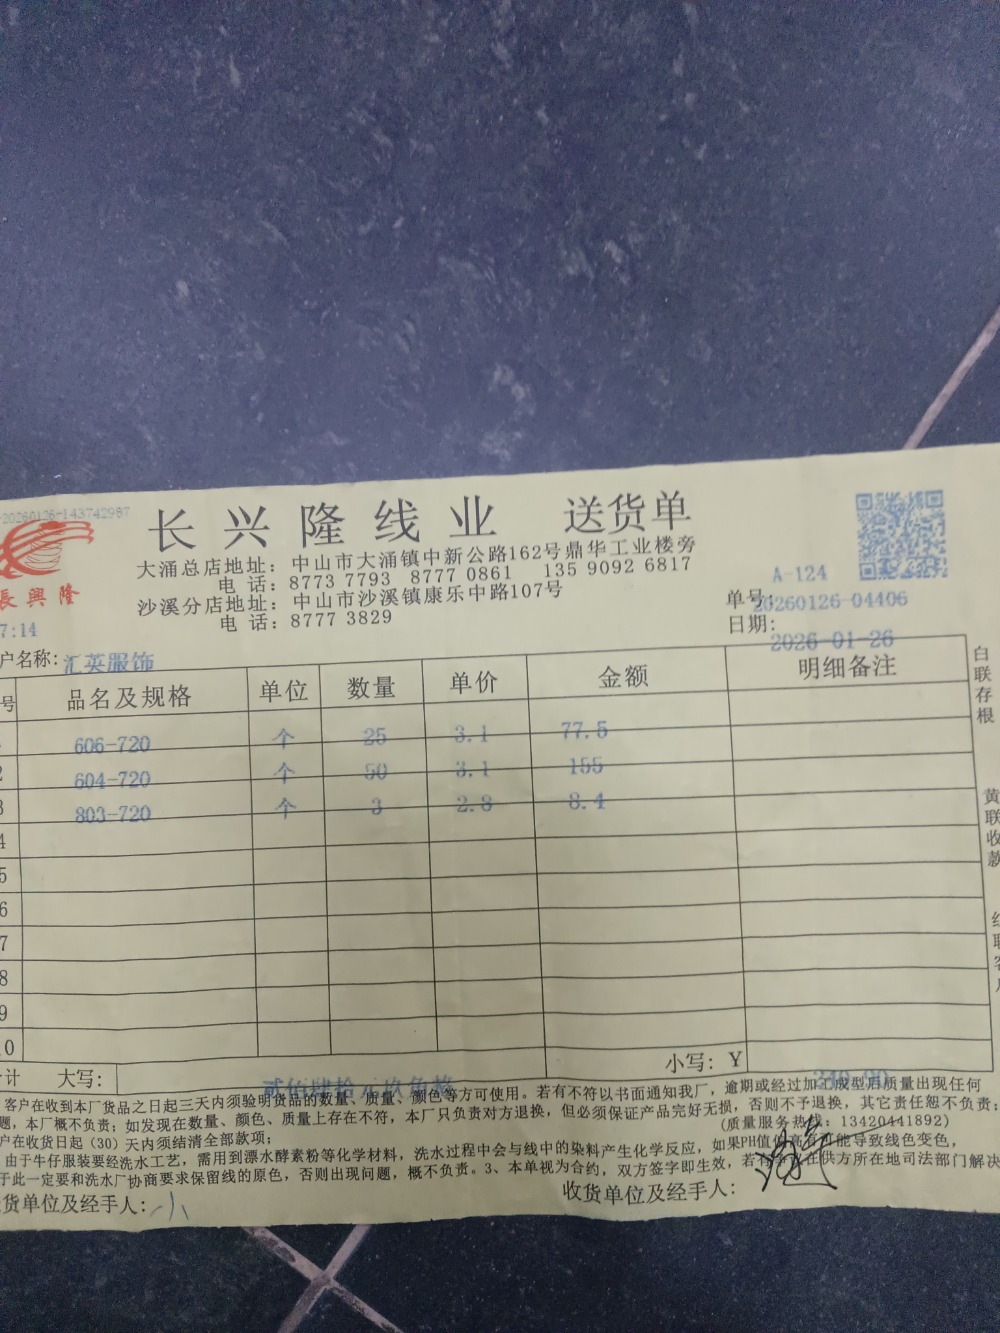 -20260126-143742987
长兴隆线业 送货单
大涌总店地址：中山市大涌镇中新公路162号鼎华工业楼旁
电 话：8773 7793 8777 0861 135 9092 6817
沙溪分店地址：中山市沙溪镇康乐中路107号
电 话：8777 3829
長興隆
7:14
A-124
单号：20260126-04406
日期：2026-01-26
户名称：汇英服饰
号 品名及规格 单位 数量 单价 金额 明细备注
606-720 个 25 3.1 77.5
2 604-720 个 50 3.1 155
3 803-720 个 3 2.8 8.4
4
5
6
7
8
9
10
计 大写：贰佰肆拾元玖角整 小写：Y 240.90
客户在收到本厂货品之日起三天内须验明货品的数量、质量、颜色等方可使用。若有不符以书面通知我厂，逾期或经过加工成型后质量出现任何
题，本厂概不负责；如发现在数量、颜色、质量上存在不符，本厂只负责对方退换，但必须保证产品完好无损，否则不予退换，其它责任恕不负责；
(质量服务热线：13420441892)
户在收货日起（30）天内须结清全部款项；
由于牛仔服装要经洗水工艺，需用到漂水酵素粉等化学材料，洗水过程中会与线中的染料产生化学反应，如果PH值偏高有可能导致线色变色，
于此一定要和洗水厂协商要求保留线的原色，否则出现问题，概不负责。3、本单视为合约，双方签字即生效，若有争议在供方所在地司法部门解决
货单位及经手人：小
收货单位及经手人：
白联存根
黄联收款
红联客